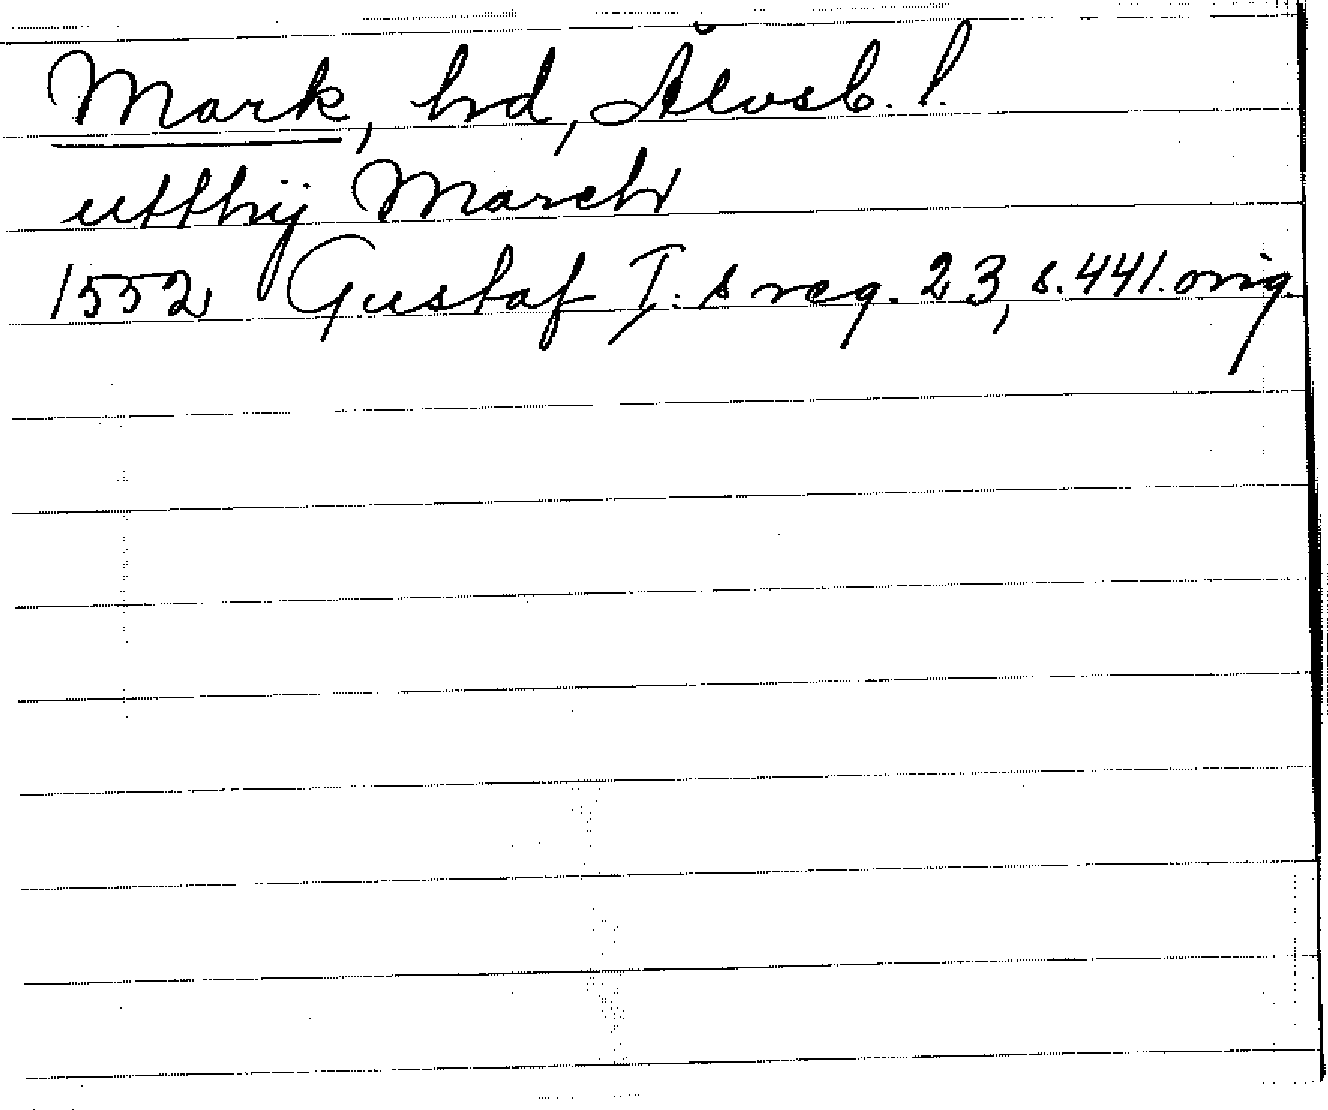 Mark, hd, Älvsb. l.
utthij March
1552 Gustaf I:s reg. 23, s. 441. orig.